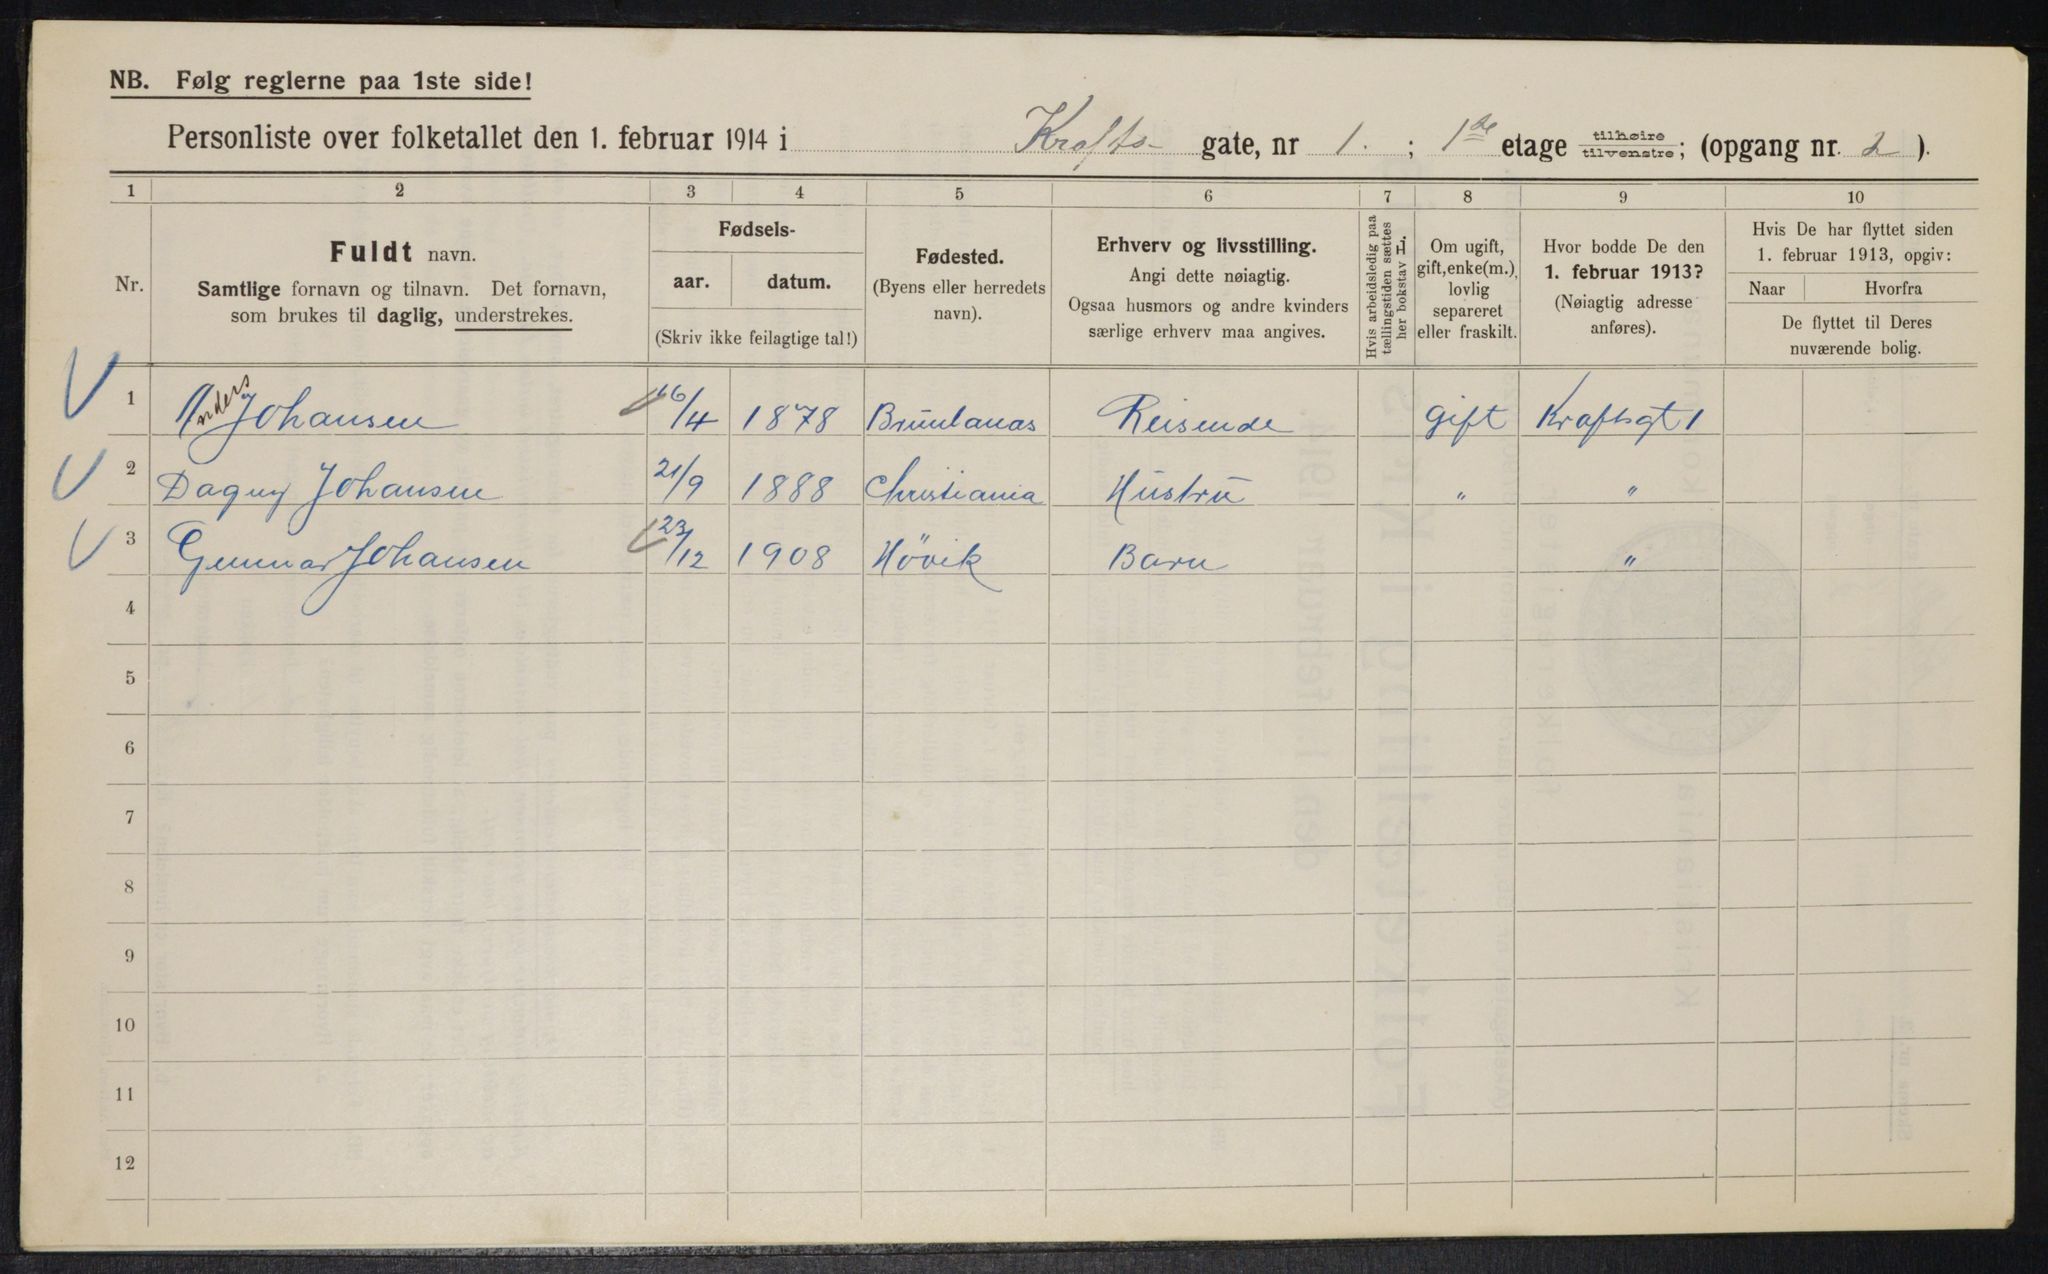 NB. Følg reglerne paa 1ste side!
Personliste over folketallet den 1. februar 1914 i Krafts- gate, nr 1. ; 1ste etage tilhøire tilvenstre; (opgang nr. 2 ).
1 2 3 4 5 6 7 8 9 10
Nr.
Fuldt navn.
Samtlige fornavn og tilnavn. Det fornavn,
som brukes til daglig, understrekes.
Fødsels-
aar. datum.
(Skriv ikke feilagtige tal!)
Fødested.
(Byens eller herredets
navn).
Erhverv og livsstilling.
Angi dette nøiagtig.
Ogsaa husmors og andre kvinders
særlige erhverv maa angives.
Hvis arbeidsledig paa
tællingstiden sættes
her bokstav L.
Om ugift,
gift, enke(m.),
lovlig
separeret
eller fraskilt.
Hvor bodde De den
1. februar 1913?
(Nøiagtig adresse
anføres).
Hvis De har flyttet siden
1. februar 1913, opgiv:
Naar Hvorfra
De flyttet til Deres
nuværende bolig.
1 Anders Johansen 16/4 1878 Brunlanas Reisende gift Kraftsgt 1
2 Dagny Johansen 21/9 1888 Christiania Hustrū " "
3 Gunnar Johansen 23/12 1908 Høvik Barn "
4
5
6
7
8
9
10
11
12